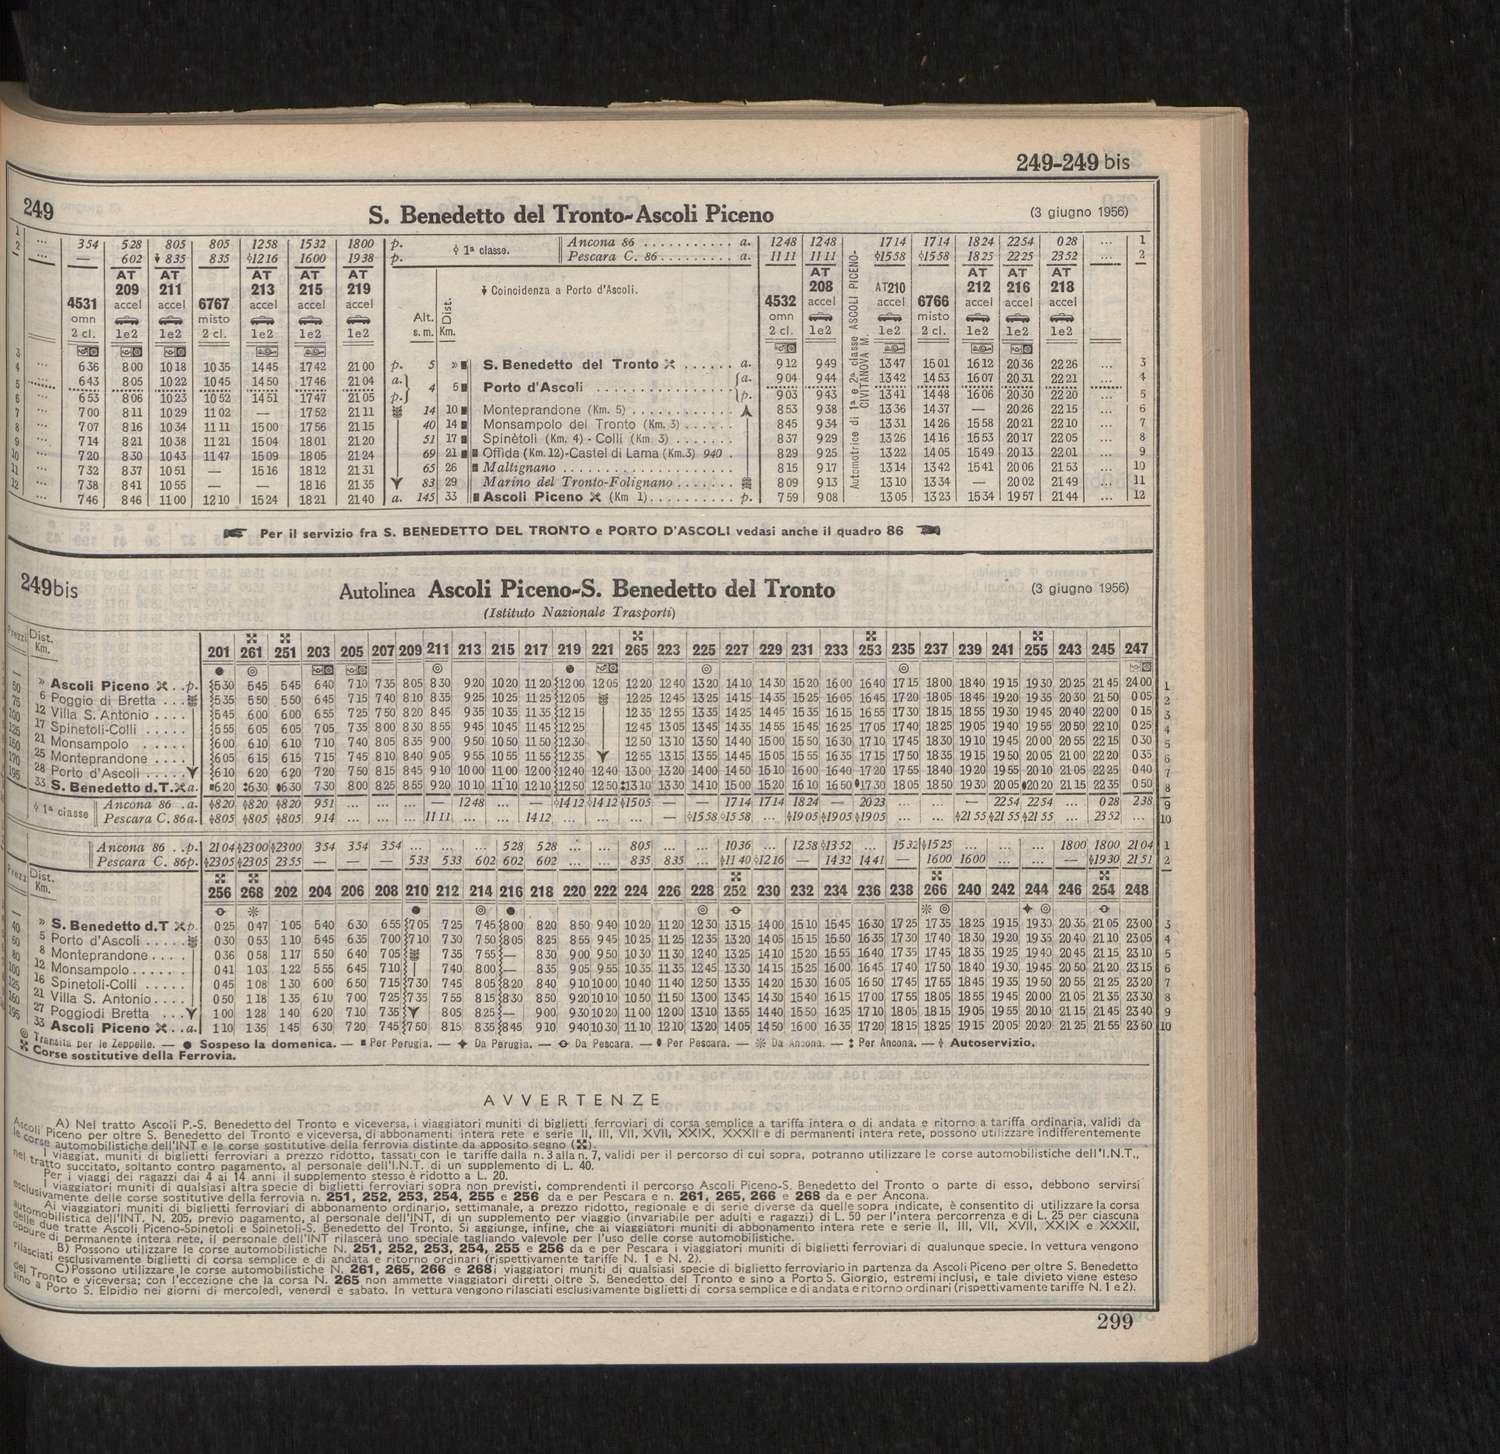 249-249 bis
249 S. Benedetto del Tronto-Ascoli Piceno (3 giugno 1956)
1 ... 354 528 805 805 1258 1532 1800 p. ◊ 1ª classe. Ancona 86 . . . . . . . . . . . a. 1248 1248 1714 1714 1824 2254 028 ... 1
2 ... — 602 835 835 ◊1216 1600 1938 p. Pescara C. 86 . . . . . . . . . a. 1111 1111 ◊1558 ◊1558 1825 2225 2352 ... 2
AT AT AT AT AT AT AT AT AT
209 211 213 215 219 Coincidenza a Porto d'Ascoli. 208 AT210 212 216 218
4531 accel accel 6767 accel accel accel 4532 accel accel 6766 accel accel accel
omn misto Alt. Dist. omn misto
2 cl. 1e2 1e2 2 cl. 1e2 1e2 1e2 s. m. Km. 2 cl. 1e2 1e2 2 cl. 1e2 1e2 1e2
Automotrice di 1ª e 2ª classe ASCOLI PICENO-CIVITANOVA M.
3 636 800 1018 1035 1445 1742 2100 p. 5 » S. Benedetto del Tronto . . . . . . a. 912 949 1347 1501 1612 2036 2226 3
4 643 805 1022 1045 1450 1746 2104 a. 4 5 Porto d'Ascoli . . . . . . a. 904 944 1342 1453 1607 2031 2221 4
5 653 806 1023 1052 1451 1747 2105 p. p. 903 943 1341 1448 1606 2030 2220 5
6 ... 700 811 1029 1102 — 1752 2111 14 10 Monteprandone (Km. 5) . . . . . . 853 938 1336 1437 — 2026 2215 ... 6
7 ... 707 816 1034 1111 1500 1756 2115 40 14 Monsampolo del Tronto (Km. 3) . . . . . 845 934 1331 1426 1558 2021 2210 ... 7
8 ... 714 821 1038 1121 1504 1801 2120 51 17 Spinètoli (Km. 4) - Colli (Km 3) . . . . . . . 837 929 1326 1416 1553 2017 2205 ... 8
9 ... 720 830 1043 1147 1509 1805 2124 69 21 Offida (Km. 12)-Castel di Lama (Km.3) 940 . 829 925 1322 1405 1549 2013 2201 ... 9
10 ... 732 837 1051 — 1516 1812 2131 65 26 Maltignano . . . . . . . . . . . . . . . . . 815 917 1314 1342 1541 2006 2153 ... 10
11 ... 738 841 1055 — — 1816 2135 83 29 Marino del Tronto-Folignano . . . . . . . 809 913 1310 1334 — 2002 2149 ... 11
12 ... 746 846 1100 1210 1524 1821 2140 a. 145 33 Ascoli Piceno (Km 1). . . . . . . . . . p. 759 908 1305 1323 1534 1957 2144 ... 12
Per il servizio fra S. BENEDETTO DEL TRONTO e PORTO D'ASCOLI vedasi anche il quadro 86
249bis Autolinea Ascoli Piceno-S. Benedetto del Tronto (3 giugno 1956)
(Istituto Nazionale Trasporti)
Prezzi Dist. Km. 201 261 251 203 205 207 209 211 213 215 217 219 221 265 223 225 227 229 231 233 253 235 237 239 241 255 243 245 247
— » Ascoli Piceno . . p. 530 545 545 640 710 735 805 830 920 1020 1120 1200 1205 1220 1240 1320 1410 1430 1520 1600 1640 1715 1800 1840 1915 1930 2025 2145 2400 1
50 6 Poggio di Bretta . . . 535 550 550 645 715 740 810 835 925 1025 1125 1205 1225 1245 1325 1415 1435 1525 1605 1645 1720 1805 1845 1920 1935 2030 2150 005 2
75 12 Villa S. Antonio . . . . 545 600 600 655 725 750 820 845 935 1035 1135 1215 1235 1255 1335 1425 1445 1535 1615 1655 1730 1815 1855 1930 1945 2040 2200 015 3
100 17 Spinetoli-Colli . . . . . 555 605 605 705 735 800 830 855 945 1045 1145 1225 1245 1305 1345 1435 1455 1545 1625 1705 1740 1825 1905 1940 1955 2050 2210 025 4
125 21 Monsampolo . . . . . 600 610 610 710 740 805 835 900 950 1050 1150 1230 1250 1310 1350 1440 1500 1550 1630 1710 1745 1830 1910 1945 2000 2055 2215 030 5
150 25 Monteprandone . . . . 605 615 615 715 745 810 840 905 955 1055 1155 1235 1255 1315 1355 1445 1505 1555 1635 1715 1750 1835 1915 1950 2005 2100 2220 035 6
170 28 Porto d'Ascoli . . . . . 610 620 620 720 750 815 845 910 1000 1100 1200 1240 1240 1300 1320 1400 1450 1510 1600 1640 1720 1755 1840 1920 1955 2010 2105 2225 040 7
195 33 S. Benedetto d.T. a. 620 630 630 730 800 825 855 920 1010 1110 1210 1250 1250 1310 1330 1410 1500 1520 1610 1650 1730 1805 1850 1930 2005 2020 2115 2235 050 8
◊ 1ª classe Ancona 86 . a. ◊820 ◊820 ◊820 951 ... ... ... — 1248 ... — ◊1412 ◊1412 ◊1505 ... — 1714 1714 1824 — 2023 ... ... — 2254 2254 ... 028 238 9
Pescara C. 86 a. ◊805 ◊805 ◊805 914 ... ... ... 1111 ... ... 1412 ... ... ... — ◊1558 ◊1558 ... ◊1905 ◊1905 ◊1905 ... ... ◊2155 ◊2155 ◊2155 ... 2352 ... 10
Ancona 86 . . p. 2104 ◊2300 ◊2300 354 354 354 ... ... ... 528 528 ... ... 805 ... ... 1036 ... 1258 ◊1352 ... 1532 ◊1525 ... ... ... 1800 1800 2104 1
Pescara C. 86 p. ◊2305 ◊2305 2355 — — — 533 533 602 602 602 ... ... 835 835 ... ◊1140 ◊1216 — 1432 1441 — 1600 1600 ... ... — ◊1930 2151 2
Prezzi Dist. Km. 256 268 202 204 206 208 210 212 214 216 218 220 222 224 226 228 252 230 232 234 236 238 266 240 242 244 246 254 248
— » S. Benedetto d.T p. 025 047 105 540 630 655 705 725 745 800 820 850 940 1020 1120 1230 1315 1400 1510 1545 1630 1725 1735 1825 1915 1930 2035 2105 2300 3
40 5 Porto d'Ascoli . . . . . 030 053 110 545 635 700 710 730 750 805 825 855 945 1025 1125 1235 1320 1405 1515 1550 1635 1730 1740 1830 1920 1935 2040 2110 2305 4
60 8 Monteprandone . . . . 036 058 117 550 640 705 735 755 — 830 900 950 1030 1130 1240 1325 1410 1520 1555 1640 1735 1745 1835 1925 1940 2045 2115 2310 5
80 12 Monsampolo . . . . . . 041 103 122 555 645 710 740 800 — 835 905 955 1035 1135 1245 1330 1415 1525 1600 1645 1740 1750 1840 1930 1945 2050 2120 2315 6
100 16 Spinetoli-Colli . . . . . 045 108 130 600 650 715 730 745 805 820 840 910 1000 1040 1140 1250 1335 1420 1530 1605 1650 1745 1755 1845 1935 1950 2055 2125 2320 7
125 21 Villa S. Antonio . . . . 050 118 135 610 700 725 735 755 815 830 850 920 1010 1050 1150 1300 1345 1430 1540 1615 1700 1755 1805 1855 1945 2000 2105 2135 2330 8
160 27 Poggiodi Bretta . . . 100 128 140 620 710 735 805 825 — 900 930 1020 1100 1200 1310 1355 1440 1550 1625 1710 1805 1815 1905 1955 2010 2115 2145 2340 9
195 33 Ascoli Piceno . . a. 110 135 145 630 720 745 750 815 835 845 910 940 1030 1110 1210 1320 1405 1450 1600 1635 1720 1815 1825 1915 2005 2020 2125 2155 2350 10
◎ Transita per le Zeppelle. — ● Sospeso la domenica. — ■ Per Perugia. — ✦ Da Perugia. — Da Pescara. — Per Pescara. — Da Ancona. — Per Ancona. — ◊ Autoservizio.
Corse sostitutive della Ferrovia.
AVVERTENZE
A) Nel tratto Ascoli P.-S. Benedetto del Tronto e viceversa, i viaggiatori muniti di biglietti ferroviari di corsa semplice a tariffa intera o di andata e ritorno a tariffa ordinaria, validi da
Ascoli Piceno per oltre S. Benedetto del Tronto e viceversa, di abbonamenti intera rete e serie II, III, VII, XVII, XXIX, XXXII e di permanenti intera rete, possono utilizzare indifferentemente
le corse automobilistiche dell'INT e le corse sostitutive della ferrovia distinte da apposito segno (✠).
I viaggiat. muniti di biglietti ferroviari a prezzo ridotto, tassati con le tariffe dalla n. 3 alla n. 7, validi per il percorso di cui sopra, potranno utilizzare le corse automobilistiche dell'I.N.T.,
nel tratto succitato, soltanto contro pagamento, al personale dell'I.N.T. di un supplemento di L. 40.
Per i viaggi dei ragazzi dai 4 ai 14 anni il supplemento stesso è ridotto a L. 20.
I viaggiatori muniti di qualsiasi altra specie di biglietti ferroviari sopra non previsti, comprendenti il percorso Ascoli Piceno-S. Benedetto del Tronto o parte di esso, debbono servirsi
esclusivamente delle corse sostitutive della ferrovia n. 251, 252, 253, 254, 255 e 256 da e per Pescara e n. 261, 265, 266 e 268 da e per Ancona.
Ai viaggiatori muniti di biglietti ferroviari di abbonamento ordinario, settimanale, a prezzo ridotto, regionale e di serie diverse da quelle sopra indicate, è consentito di utilizzare la corsa
automobilistica dell'INT. N. 205, previo pagamento, al personale dell'INT, di un supplemento per viaggio (invariabile per adulti e ragazzi) di L. 50 per l'intera percorrenza e di L. 25 per ciascuna
delle due tratte Ascoli Piceno-Spinetoli e Spinetoli-S. Benedetto del Tronto. Si aggiunge, infine, che ai viaggiatori muniti di abbonamento intera rete e serie II, III, VII, XVII, XXIX e XXXII,
oppure di permanente intera rete, il personale dell'INT rilascerà uno speciale tagliando valevole per l'uso delle corse automobilistiche.
B) Possono utilizzare le corse automobilistiche N. 251, 252, 253, 254, 255 e 256 da e per Pescara i viaggiatori muniti di biglietti ferroviari di qualunque specie. In vettura vengono
rilasciati esclusivamente biglietti di corsa semplice e di andata e ritorno ordinari (rispettivamente tariffe N. 1 e N. 2).
C) Possono utilizzare le corse automobilistiche N. 261, 265, 266 e 268 i viaggiatori muniti di qualsiasi specie di biglietto ferroviario in partenza da Ascoli Piceno per oltre S. Benedetto
del Tronto e viceversa; con l'eccezione che la corsa N. 265 non ammette viaggiatori diretti oltre S. Benedetto del Tronto e sino a Porto S. Giorgio, estremi inclusi, e tale divieto viene esteso
sino a Porto S. Elpidio nei giorni di mercoledì, venerdì e sabato. In vettura vengono rilasciati esclusivamente biglietti di corsa semplice e di andata e ritorno ordinari (rispettivamente tariffe N. 1 e 2).
299